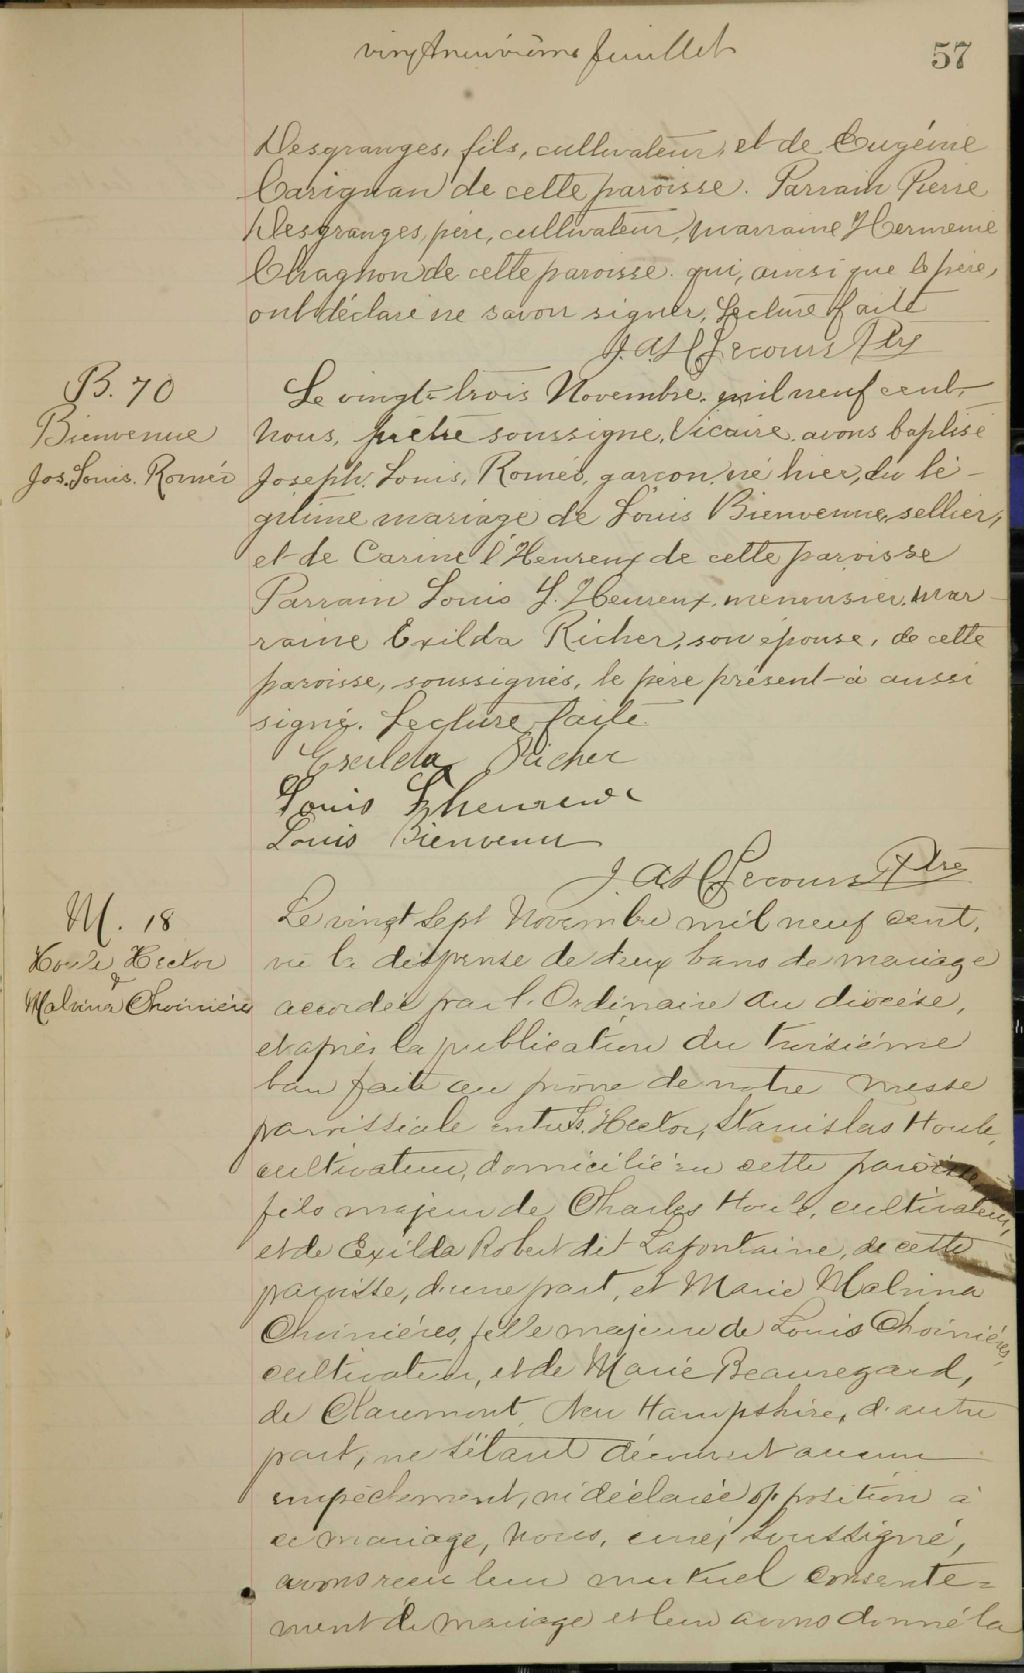 vingtneuvième feuillet
57
Desgranges, fils, cultivateur, et de Eugénie
Carignan de cette paroisse. Parrain Pierre
Desgranges, père, cultivateur, marraine Hermenie
Chagnon de cette paroisse. qui, ainsi que le père,
ont déclaré ne savoir signer, Lecture faite
Lecours Ptre
B. 70
Bienvenue
Jos. Louis. Roméo
Le vingt-trois Novembre. mil neuf cent,
Nous, prêtre soussigné, Vicaire, avons baptisé
Joseph. Louis, Roméo, garçon, né hier, du lé-
gitime mariage de Louis Bienvenue, sellier,
et de Carine l'Heureux de cette paroisse
Parrain Louis L'Heureux, menuisier, mar-
raine Exilda Richer, son épouse, de cette
paroisse, soussignés, le père présent a aussi
signé. Lecture faite.
Exilda Richer
Louis Lheureux
Louis Bienvenu
Lecours Ptre
M. 18
Houle Hector
&
Malvina Choinière
Le vingt sept Novembre mil neuf cent,
vu la dispense de deux bans de mariage
accordée par l'Ordinaire du diocèse,
et après la publication du troisième
ban faite au prône de notre messe
paroissiale entre Hector, Stanislas Houle,
cultivateur, domicilié en cette paroisse
fils majeur de Charles Houle, cultivateur,
et de Exilda Robert dit Lafontaine, de cette
paroisse, d'une part, et Marie Malvina
Choinières, fille majeure de Louis Choinières,
cultivateur, et de Marie Beauregard,
de Claremont, New Hampshire, d'autre
part, ne s'étant découvert aucun
empêchement, ni déclarée opposition à
ce mariage, Nous, curé, soussigné,
avons reçu leur mutuel consente=
ment de mariage et leur avons donné la